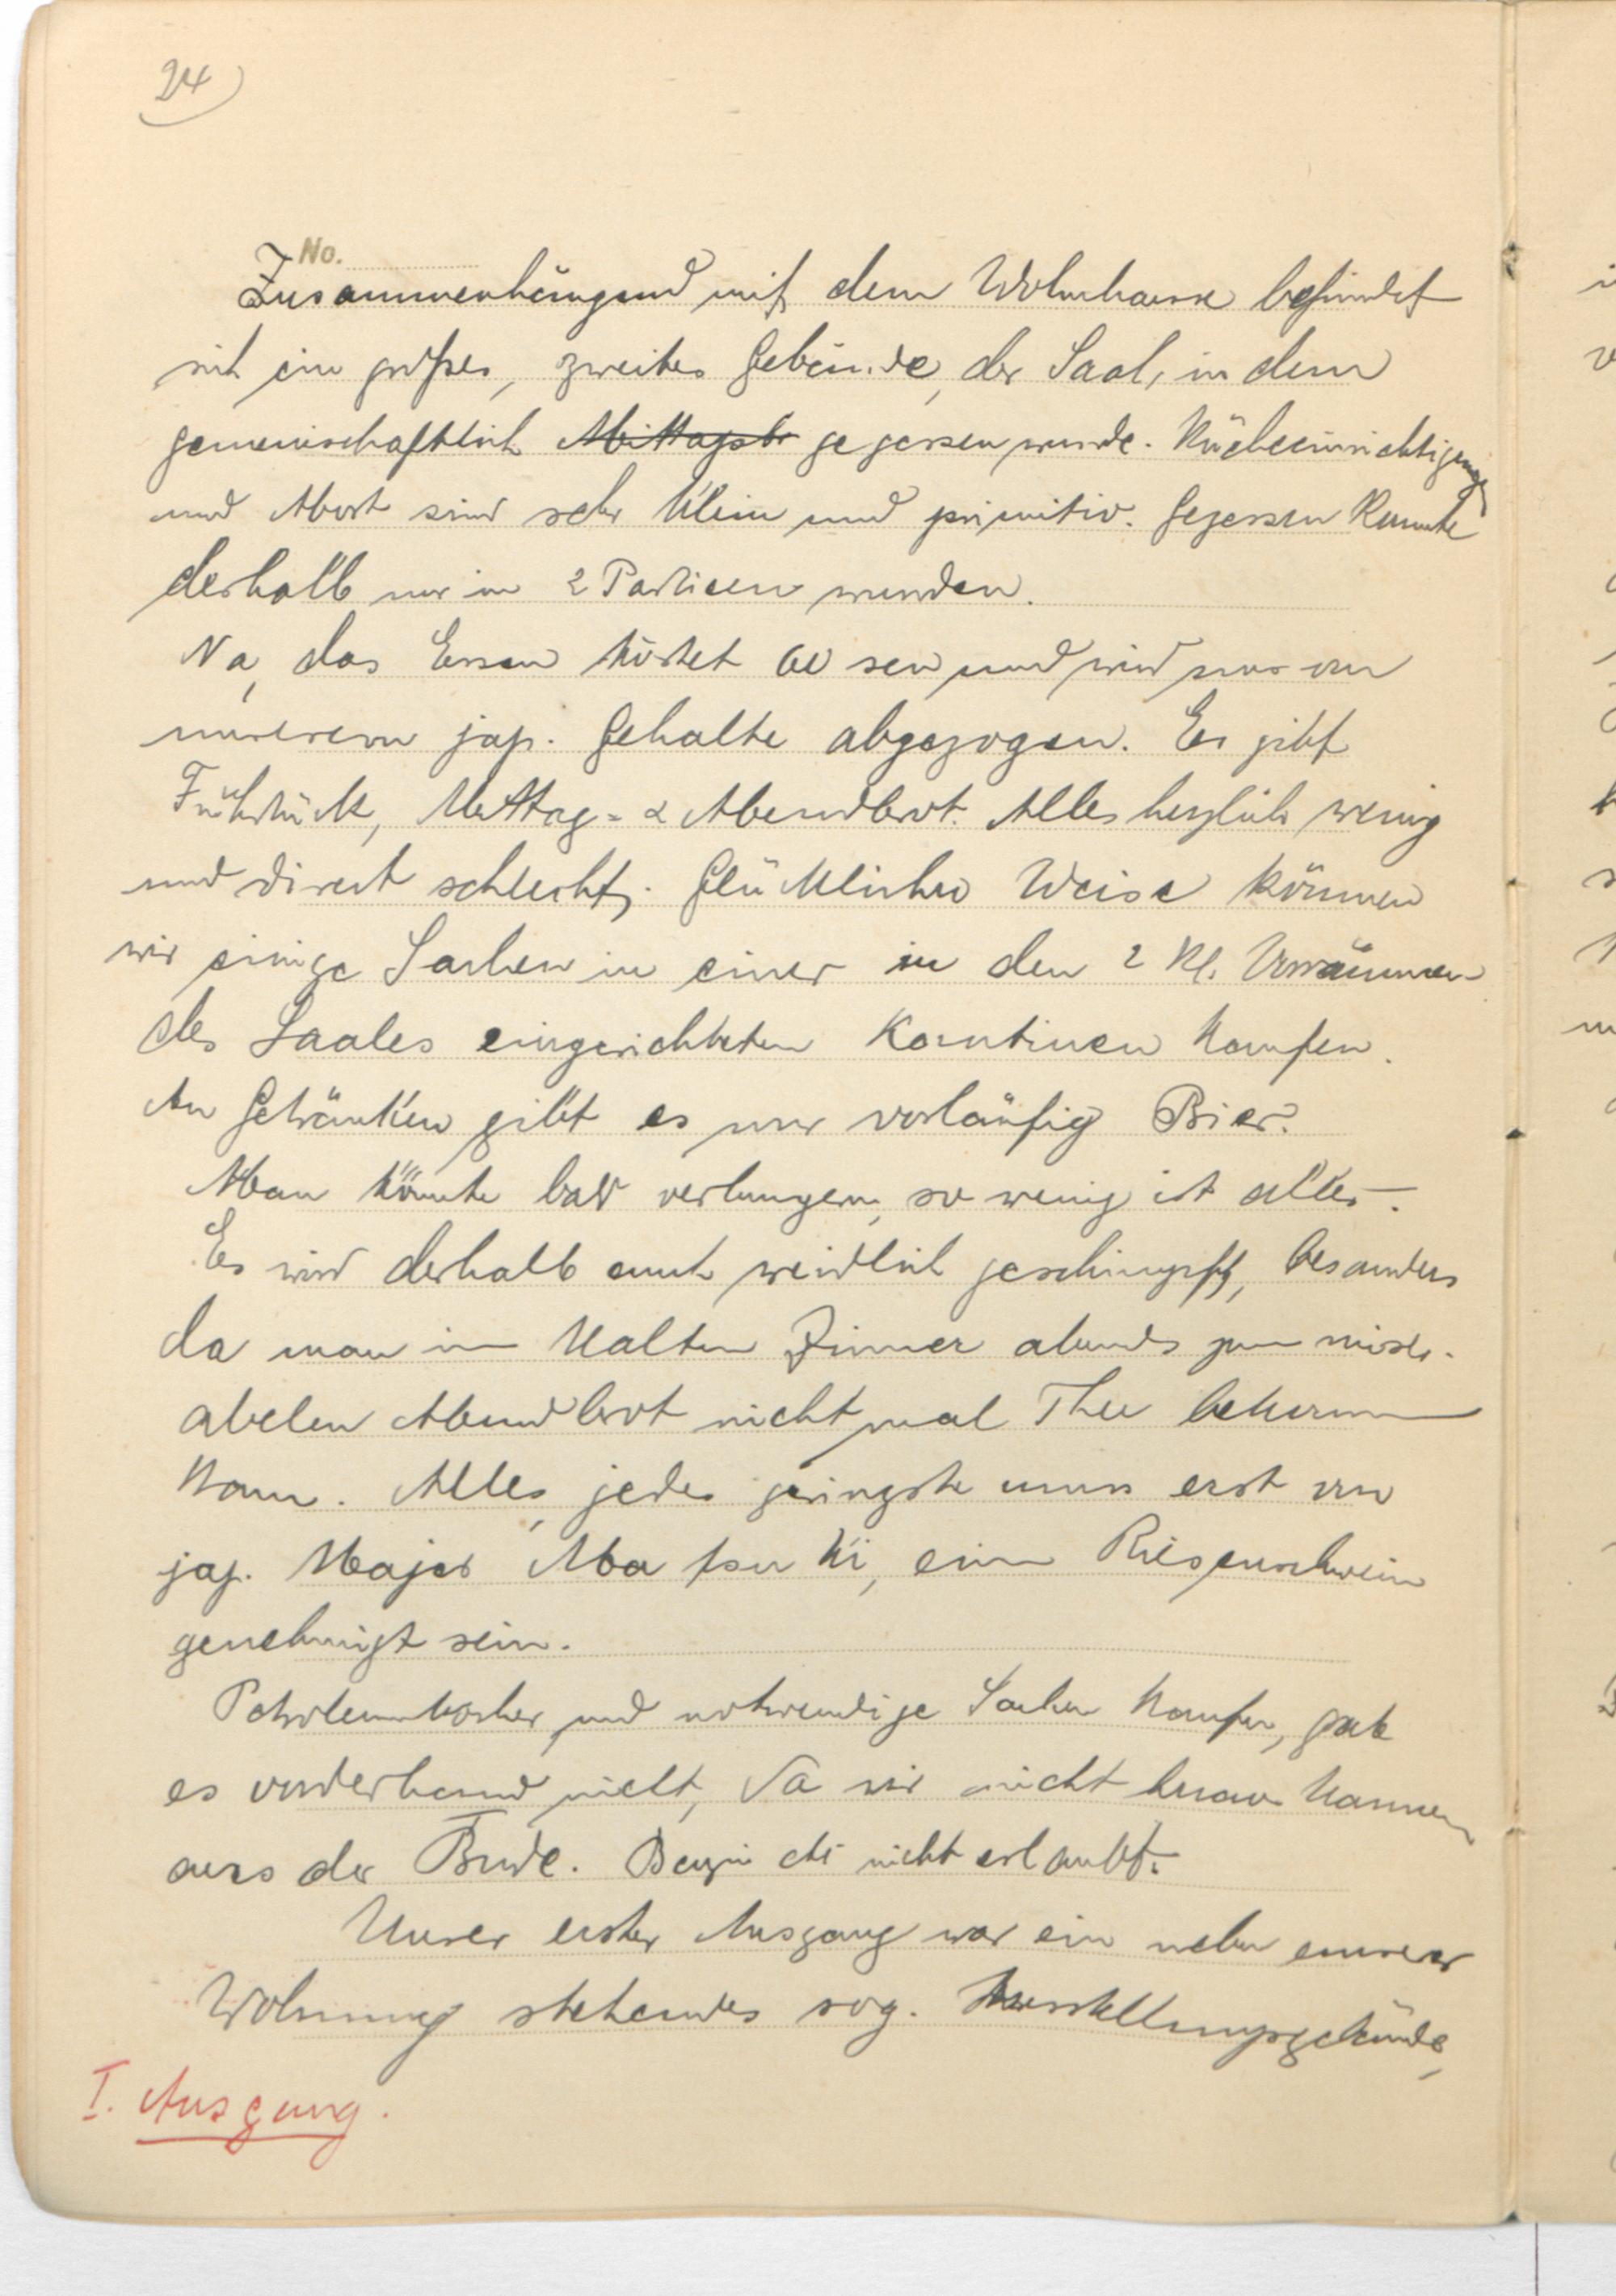 24)
No.
Zusammenhängend mit dem Wohnhause befindet
sich ein großes, zweites Gebäude, der Saal, in dem
gemeinschaftlich Mittagsbr gegessen wurde. Kücheeinrichtigungen
und Abort sind sehr klein und primitiv. Gegessen konnte
deshalb nur in 2 Partieen werden.
Na, das Essen kostet 60 sen und wird uns von
unserem jap. Gehalte abgezogen. Es gibt
Frühstück, Mittag= & Abendbrot. Alles herzlich wenig
und direct schlecht. Glücklicher Weise können
wir einige Sachen in einer in den 2 kl. Vorräumen
des Saales eingerichteten Kantinen kaufen.
An Getränken gibt es nur vorläufig Bier.
Man könnte bald verhungern, so wenig ist alles.
Es wird deshalb auch weidlich geschimpft, besonders
da man im kalten Zimmer abends zum miser-
abelen Abendbrot nicht mal Thee bekommen
kann. Alles, jedes geringste muss erst von
jap. Major Matsuki, ein Riesenschwein
genehmigt sein.
Petroleumkocher und notwendige Sachen kaufen, gab
es vorderhand nicht, da wir nicht heraus kamen
aus der Bude. Benzin etc nicht erlaubt.
Unser erster Ausgang war ein neben unserer
Wohnung stehendes sog. Ausstellungsgebäude,
I. Ausgang.